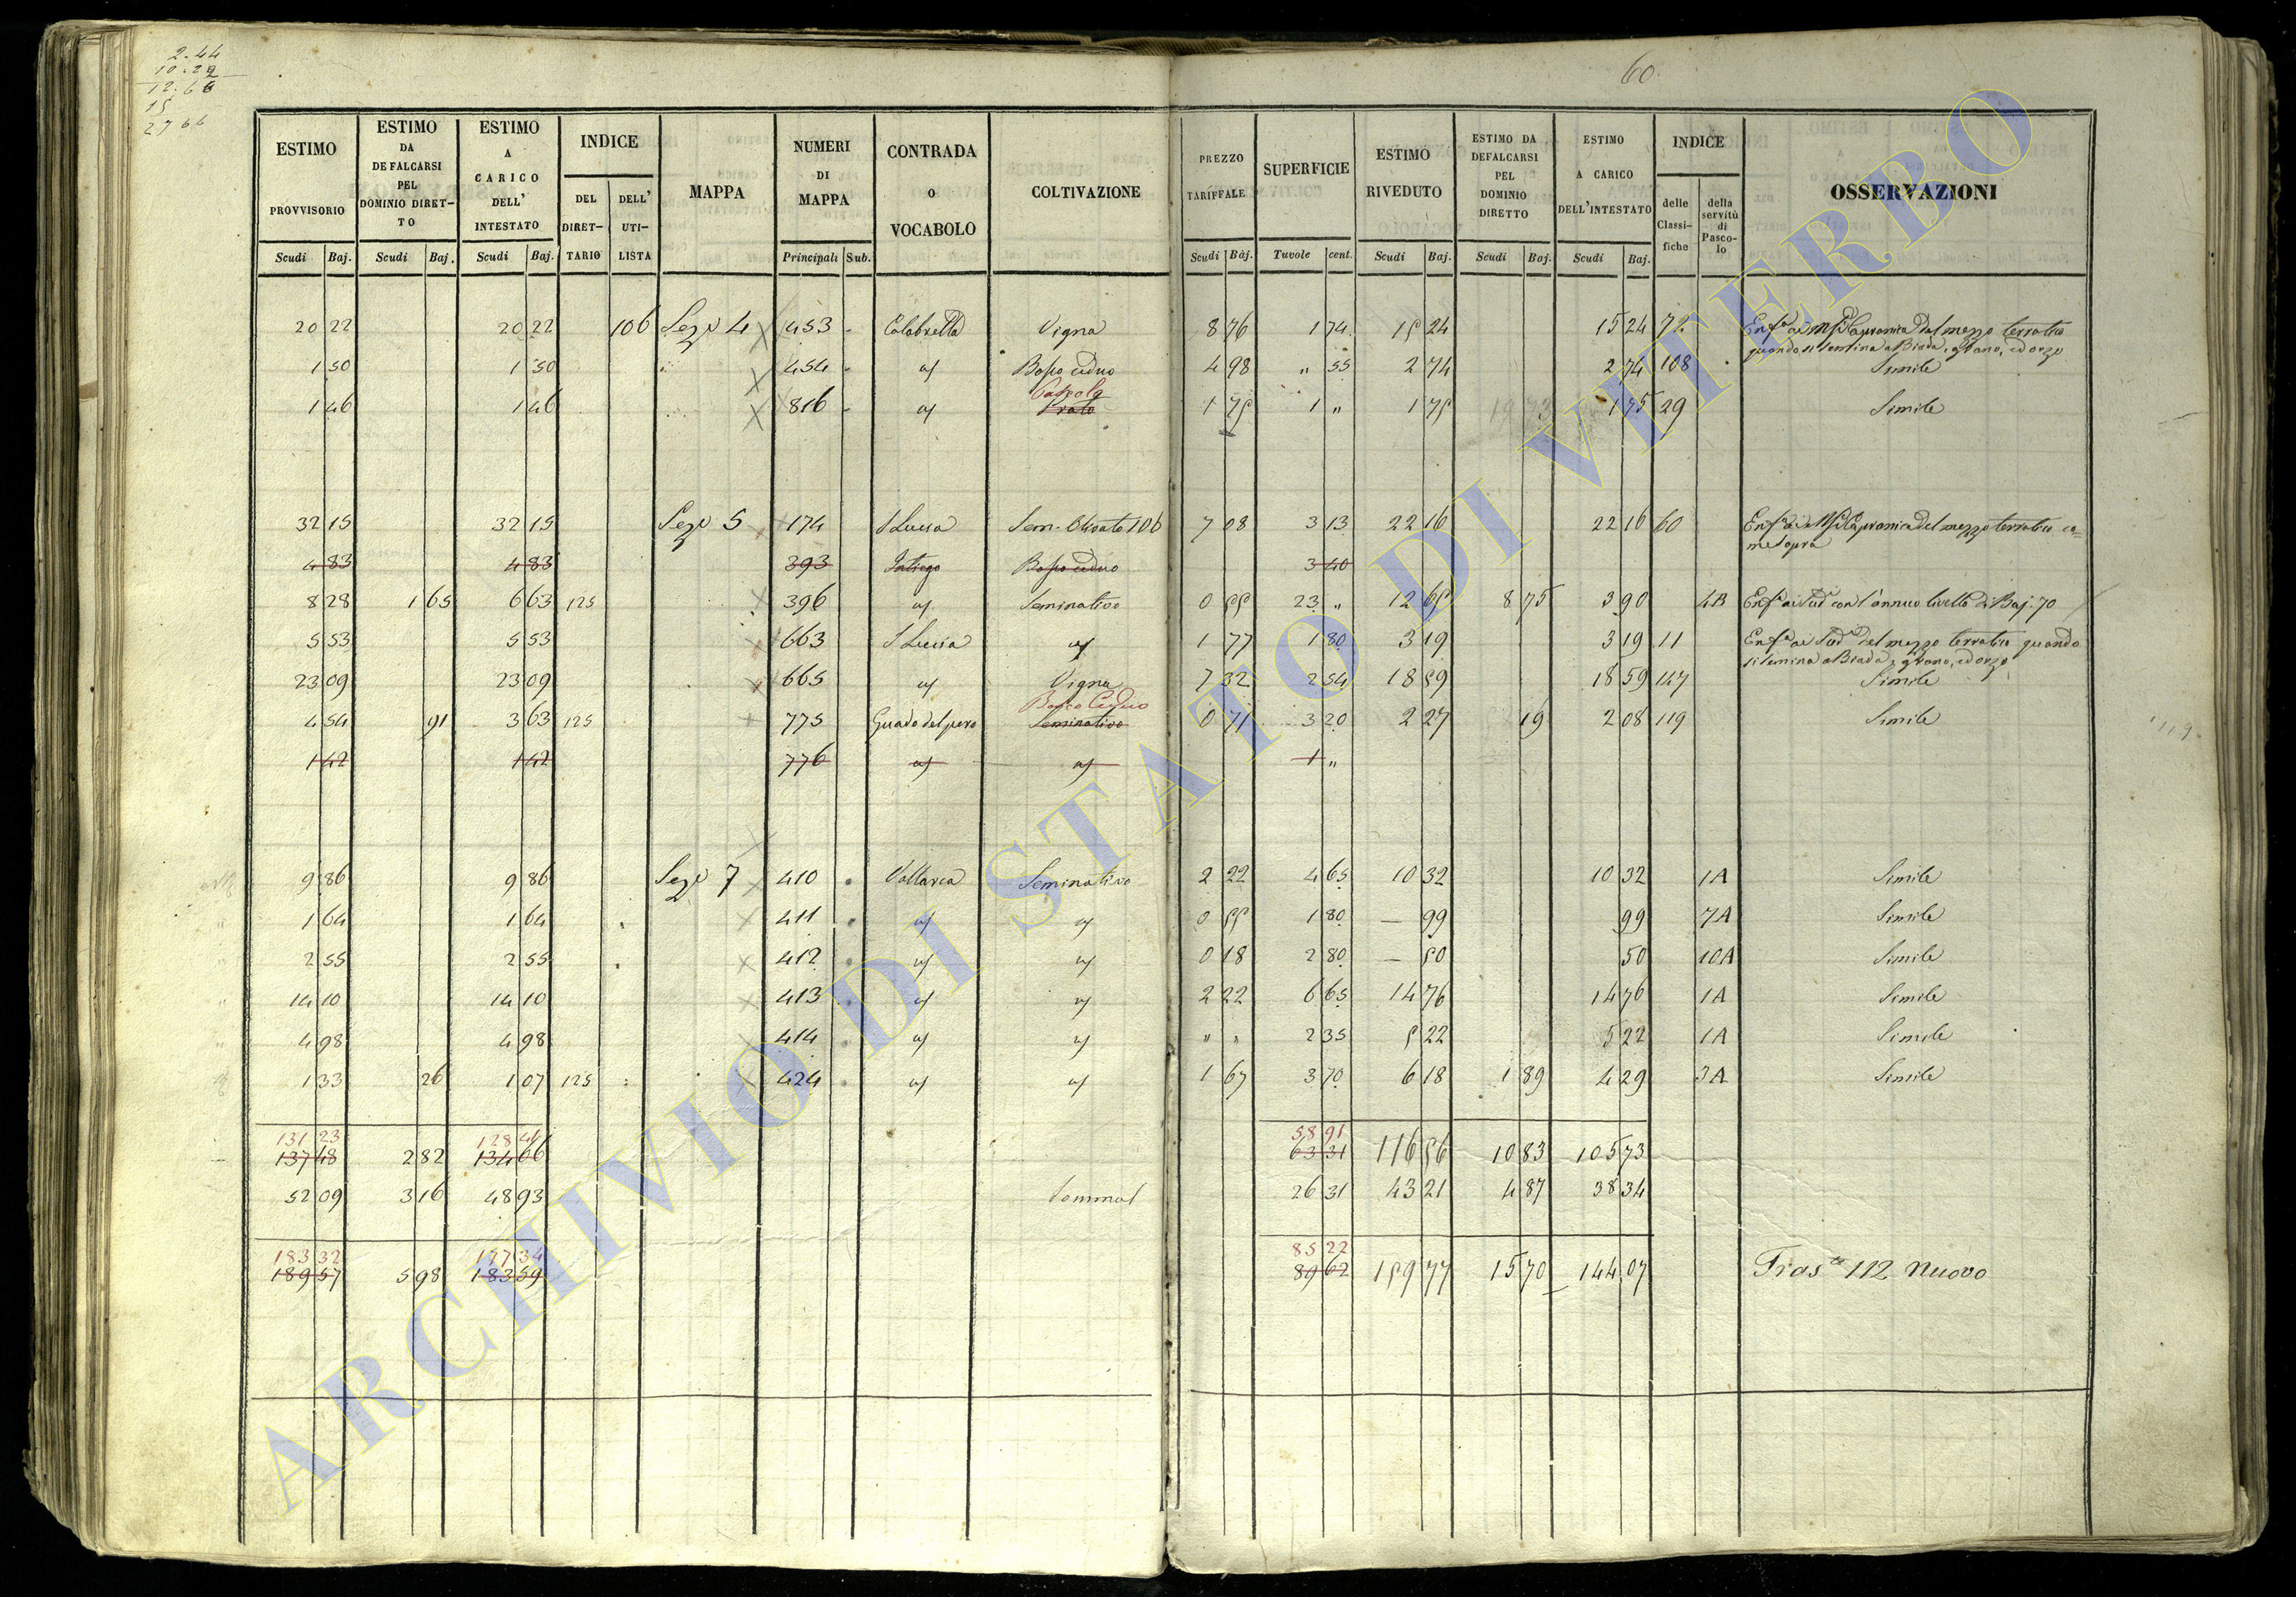 2.44
10.22
12.66
15
27 66
60.
ESTIMO PROVVISORIO Scudi Baj.
ESTIMO DA DEFALCARSI PEL DOMINIO DIRET-TO Scudi Baj.
ESTIMO A CARICO DELL' INTESTATO Scudi Baj.
INDICE DEL DIRET-TARIO DELL' UTI-LISTA
MAPPA
NUMERI DI MAPPA Principali Sub.
CONTRADA o VOCABOLO
COLTIVAZIONE
PREZZO TARIFFALE Scudi Baj.
SUPERFICIE Tavole cent.
ESTIMO RIVEDUTO Scudi Baj.
ESTIMO DA DEFALCARSI PEL DOMINIO DIRETTO Scudi Baj.
ESTIMO A CARICO DELL'INTESTATO Scudi Baj.
INDICE delle Classi-fiche della servitù di Pasco-lo
OSSERVAZIONI
20 22 20 22 106 Sez. 4 453 Calabrella Vigna 8 76 1 74 15 24 15 24 72 del mezzo terratico
quando si semina a Biada, grano, ed orzo
1 50 1 50 454 Bosco ceduo 4 98 " 55 2 74 2 74 108 Simile
1 46 1 46 816 Prato 1 75 1 " 1 75 1 75 29 Simile
32 15 32 15 Sez. 5 174 S Lucia Sem. Olivato 106 7 08 3 13 22 16 22 16 60 del mezzo terratico co=
me sopra
4 83 4 83 393 Bosco ceduo 3 40
8 28 1 65 6 63 125 396 Seminativo 0 55 23 " 12 65 8 75 3 90 4B con l'annuo livello di Baj. 70
5 53 5 53 663 S Lucia 1 77 1 80 3 19 3 19 11 del mezzo terratico quando
si semina a Biada, grano, ed orzo
23 09 23 09 665 Vigna 7 32 2 54 18 59 18 59 147 Simile
Bosco Ceduo
4 54 91 3 63 125 775 Guado del pero Seminativo 0 71 3 20 2 27 19 2 08 119 Simile
119
1 42 1 42 776 1 "
9 86 9 86 Sez. 7 410 Vallarca Seminativo 2 22 4 65 10 32 10 32 1A Simile
1 64 1 64 411 0 55 1 80 — 99 99 7A Simile
2 55 2 55 412 0 18 2 80 — 50 50 10A Simile
14 10 14 10 413 2 22 6 65 14 76 14 76 1A Simile
4 98 4 98 414 " " 2 35 5 22 5 22 1A Simile
1 33 26 1 07 125 424 1 67 3 70 6 18 1 89 4 29 3A Simile
131 23 128 41 58 91
137 48 2 82 134 66 63 31 116 56 10 83 105 73
52 09 3 16 48 93 26 31 43 21 4 87 38 34
183 32 177 34 85 22
189 57 5 98 183 59 89 62 159 77 15 70 144 07 Tras 112 nuovo
ARCHIVIO DI STATO DI VITERBO